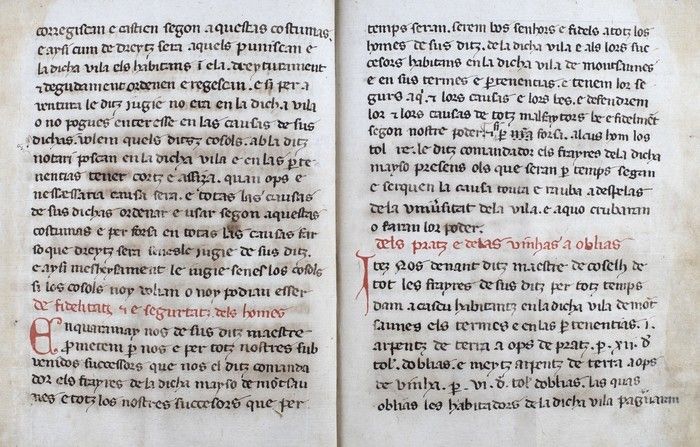 corregiscan e castien segon aquestas costumas.
e aysi cum de dreytz sera aquels puniscan e
la dicha vila els habitans i ela. dreyturament
e degudament ordenen e regescan. e si per a
ventura le ditz jugie no era en la dicha vila
o no pogues entreesse en las causas de sus
dichas. volem quels ditz cosols. ab la ditz
notari poscan en la dicha vila e en las pte
nentias tener cortz e assiza. quan ops e
nessessaria causa sera. e totas las causas
de sus dichas ordenar e usar segon aquestas
costumas e per forsa en totas las causas far
so que dreytz sera senes le jugie de sus ditz.
e aysi mescheysament le jugie senes los cosols
si los cosols noy volian o noy podian esser
de fidelitatz e e segurtatz dels homes
Enquaramay nos de sus ditz maestre
prometem p nos e per totz nostres sub
venidos successors que nos el ditz comanda
dor els frayres de la dicha mayso de motsau
nes e totz los nostres successors que per
temps seran. serem bos senhors e fidels a totz los
homes de sus ditz. de la dicha vila e als lors suc
cesors habitans en la dicha vila de montsaunes
e en sus termes e ptenentias. e tenem lor se
gurs aqi. e lors causas e lors bes. e defendrem
lor e lors causas de totz malfaytors be e fidelmet
segon nostre poder p nra forsa. alcus hom los
tol re. le ditz comandador els frayres de la dicha
mayso presens o ls que seran p temps segan
e serquen la causa touta e rauba a despessas
de la universitat de la vila. e aquo crubaran
o faran lor poder.
dels pratz e de las vinhas a oblias
Itez Nos denant ditz maestre de coselh de
tot les frayres de sus ditz per totz temps
dam a cascu habitantz en la dicha vila de mot
saunes els termes e en las ptenentias. i.
arpentz de terra a ops de pratz. p. xii. d
tol. doblias. e meytz arpentz de terra a ops
de vinha. p. vi. d. tol doblias. las quas
oblias les habitadors de la dicha vila pagaram